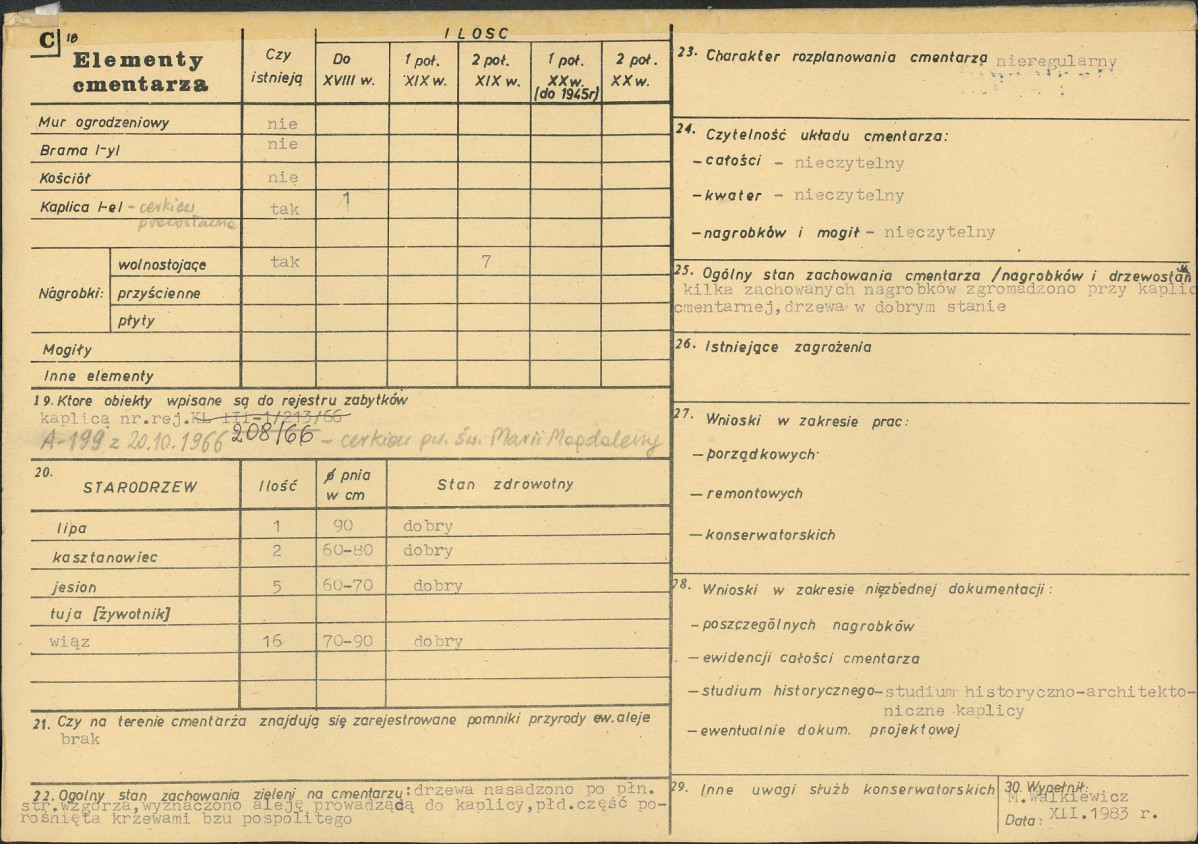 C 18
Elementy cmentarza
Czy istnieją
ILOSC
Do XVIII w.
1 poł. XIX w.
2 poł. XIX w.
1 poł. XX w. (do 1945r)
2 poł. XX w.
Mur ogrodzeniowy nie
Brama l-yl nie
Kościół nie
Kaplica l-el - cerkiew prawosławna tak 1
Nagrobki:
wolnostojące tak 7
przyścienne
płyty
Mogiły
Inne elementy
19. Ktore obiekty wpisane są do rejestru zabytków
kaplicą nr.rej. KL III-1/213/66
A-199 z 20.10.1966 208/66 - cerkiew pw. św. Marii Magdaleny
20. STARODRZEW Ilość ø pnia w cm Stan zdrowotny
lipa 1 90 dobry
kasztanowiec 2 60-80 dobry
jesion 5 60-70 dobry
tuja [żywotnik]
wiąz 16 70-90 dobry
21. Czy na terenie cmentarza znajdują się zarejestrowane pomniki przyrody ew. aleje
brak
22. Ogolny stan zachowania zieleni na cmentarzu: drzewa nasadzono po płn.
str.wzgórza,wyznaczono aleję prowadzącą do kaplicy,płd.część po-
rośnięta krzewami bzu pospolitego
23. Charakter rozplanowania cmentarza nieregularny
24. Czytelność układu cmentarza:
- całości - nieczytelny
- kwater - nieczytelny
- nagrobków i mogił - nieczytelny
25. Ogólny stan zachowania cmentarza /nagrobków i drzewostan
kilka zachowanych nagrobków zgromadzono przy kaplic
cmentarnej,drzewa w dobrym stanie
26. Istniejące zagrożenia
27. Wnioski w zakresie prac:
- porządkowych
- remontowych
- konserwatorskich
28. Wnioski w zakresie niezbednej dokumentacji:
- poszczególnych nagrobków
- ewidencji całości cmentarza
- studium historycznego - studium historyczno-architekto-
niczne kaplicy
- ewentualnie dokum. projektowej
29. Inne uwagi służb konserwatorskich
30. Wypełnił:
M.Walkiewicz
Data: XII.1983 r.